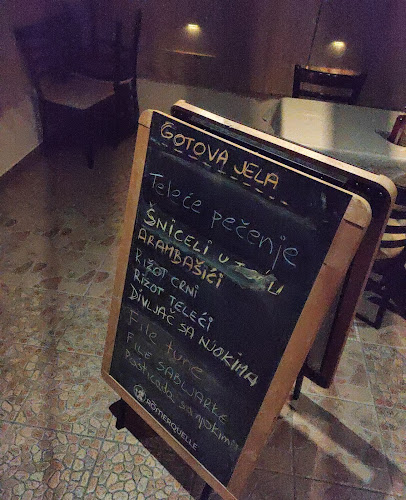 GOTOVA JELA
Teleće pečenje
ŠNICELI U
ARAMBAŠIĆI
RIŽOT CRNI
RIŽOT TELEĆI
DIVLJAČ SA NJOKIMA
File tune
FILE SABLJARKE
Pašticada sa njokima
RÖMERQUELLE